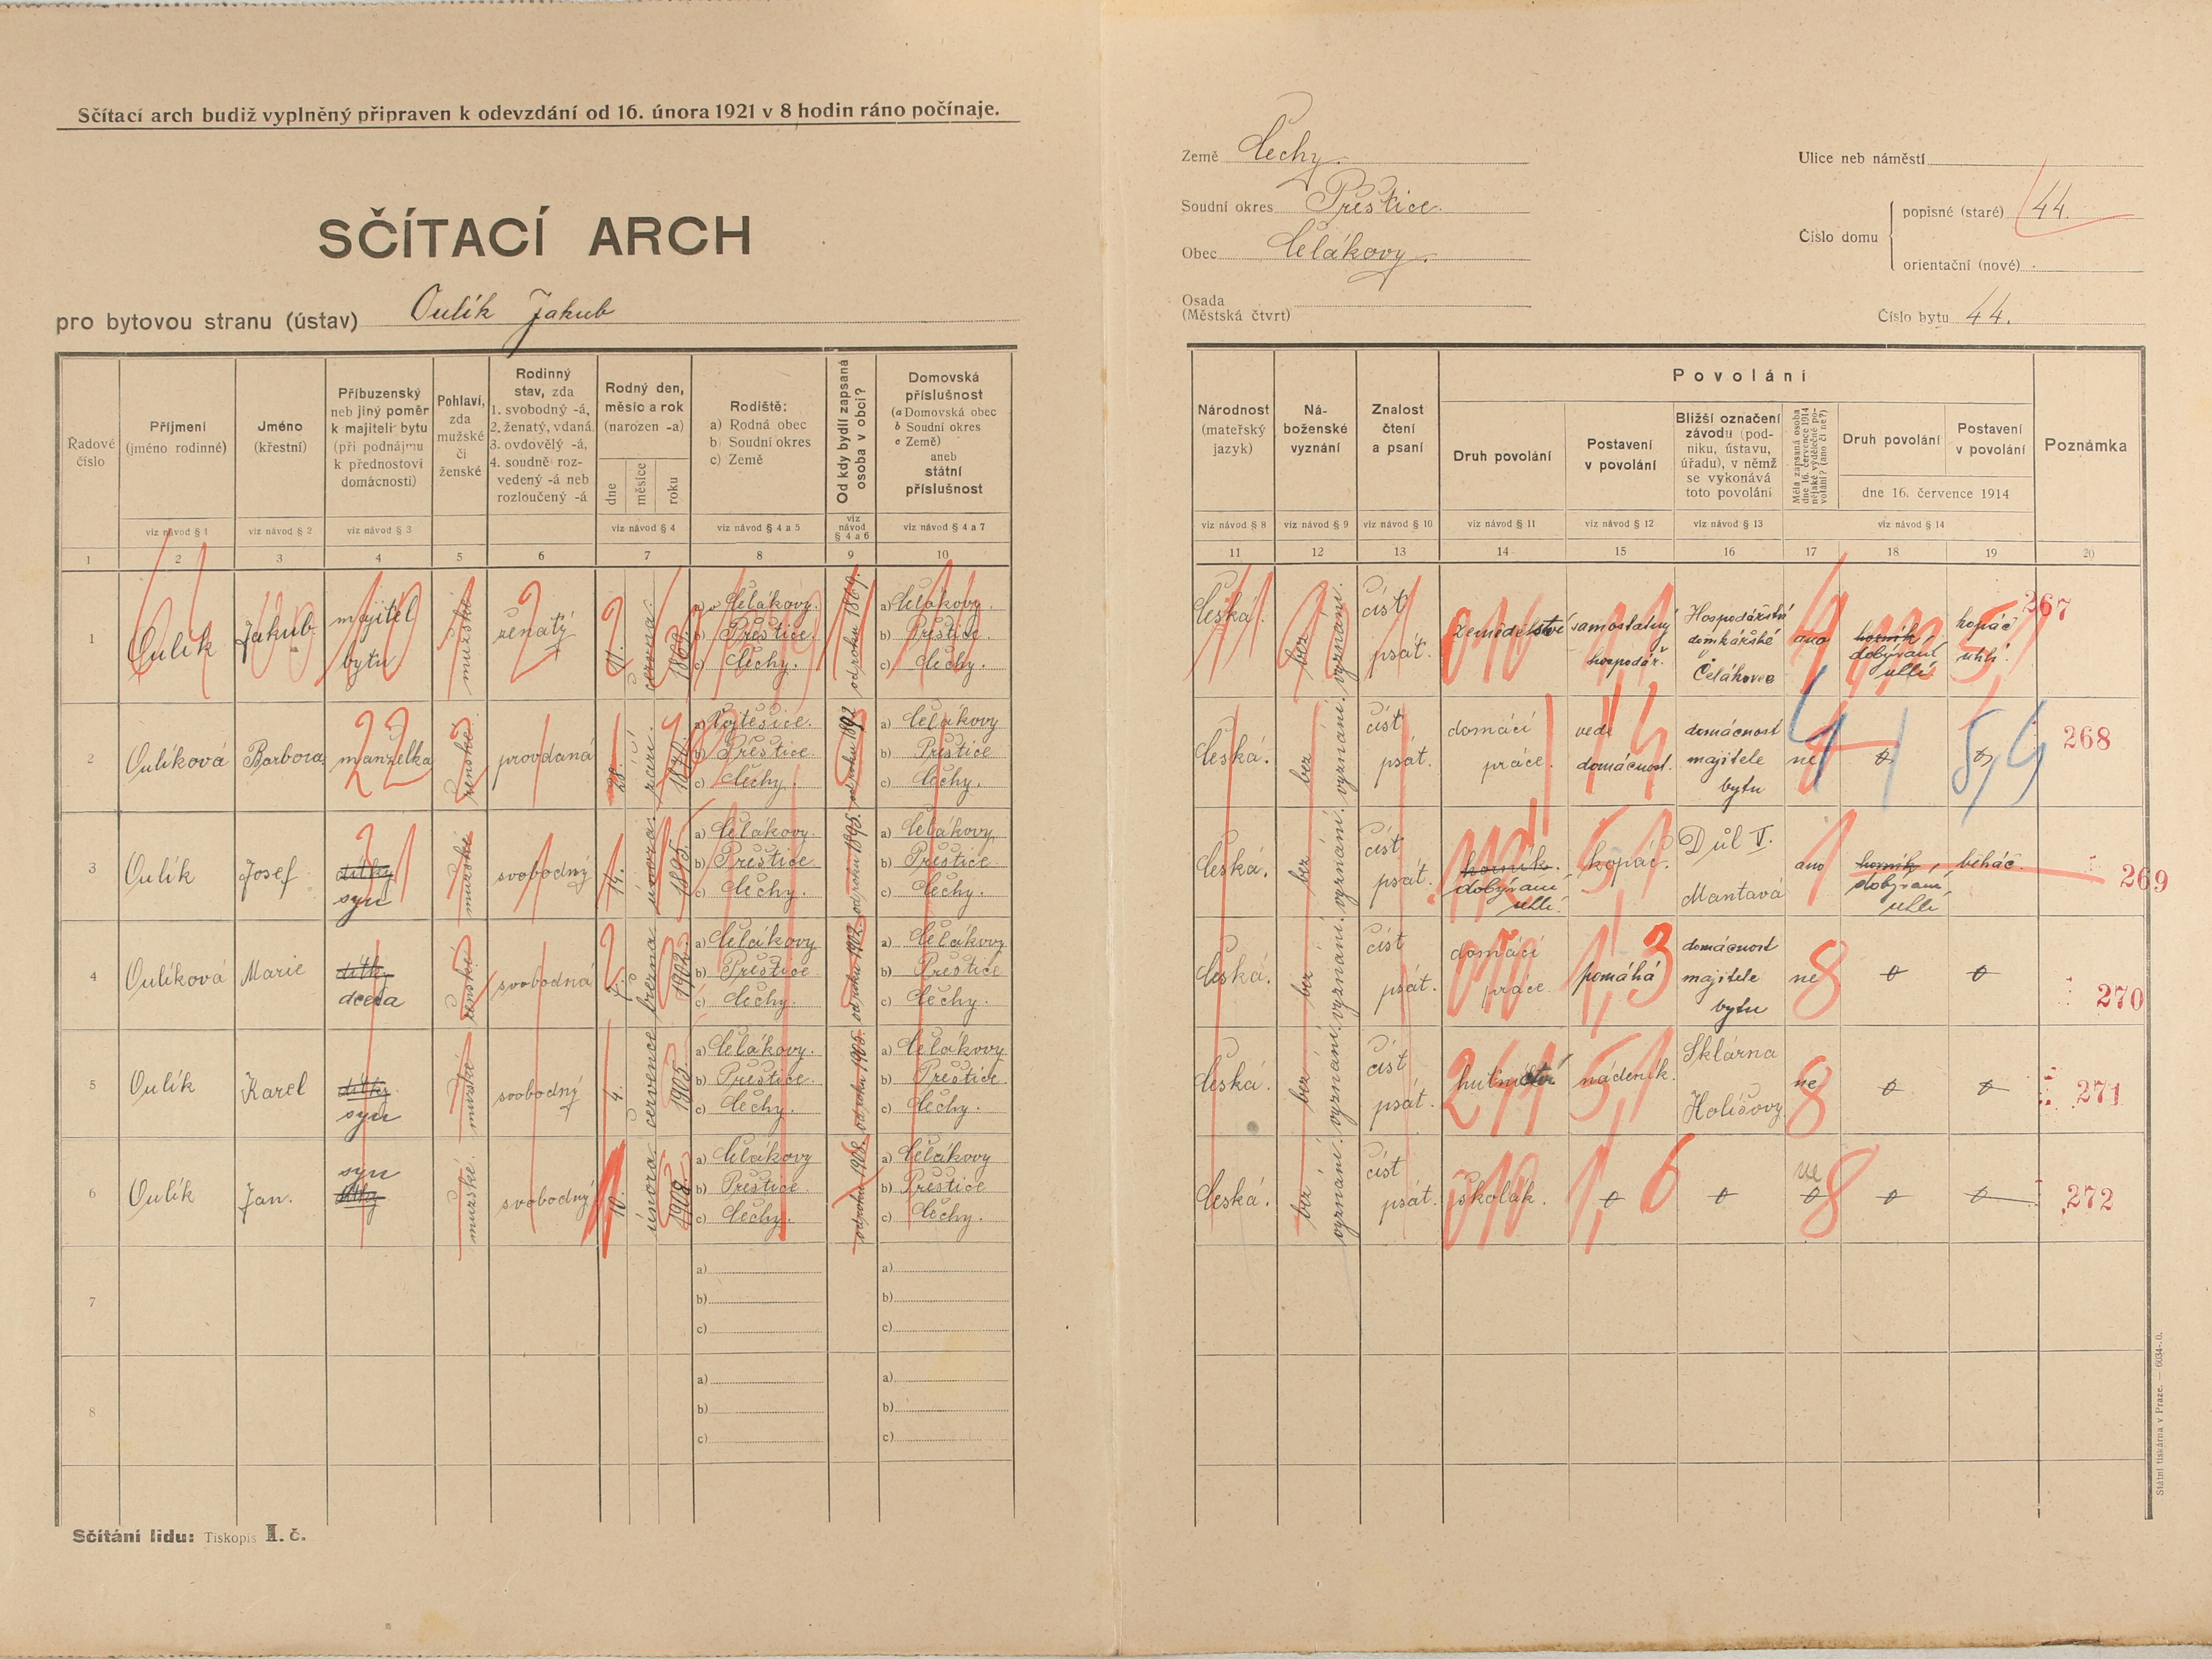 Sčítací arch budiž vyplněný připraven k odevzdání od 16. února 1921 v 8 hodin ráno počínaje.
SČÍTACÍ ARCH
pro bytovou stranu (ústav) Oulík Jakub
Země Čechy.
Soudní okres Přeštice.
Obec Čelákovy.
Osada
(Městská čtvrt)
Ulice neb náměstí
Číslo domu
popisné (staré) 44.
orientační (nové)
Číslo bytu 44.
Řadové
číslo
Příjmení
(jméno rodinné)
viz návod § 1
Jméno
(křestní)
viz návod § 2
Příbuzenský
neb jiný poměr
k majiteli bytu
(při podnájmu
k přednostovi
domácnosti)
viz návod § 3
Pohlaví,
zda
mužské
či
ženské
Rodinný
stav, zda
1. svobodný -á,
2. ženatý, vdaná
3. ovdovělý -á,
4. soudně roz-
vedený -á neb
rozloučený -á
Rodný den,
měsíc a rok
(narozen -a)
dne
měsíce
roku
viz návod § 4
Rodiště:
a) Rodná obec
b) Soudní okres
c) Země
viz návod § 4 a 5
Od kdy bydlí zapsaná
osoba v obci?
viz
návod
§ 4 a 6
Domovská
příslušnost
(a Domovská obec
b Soudní okres
c Země)
aneb
státní
příslušnost
viz návod § 4 a 7
Národnost
(mateřský
jazyk)
viz návod § 8
Ná-
boženské
vyznání
viz návod § 9
Znalost
čtení
a psaní
viz návod § 10
Povolání
Druh povolání
viz návod § 11
Postavení
v povolání
viz návod § 12
Bližší označení
závodu (pod-
niku, ústavu,
úřadu), v němž
se vykonává
toto povolání
viz návod § 13
Měla zapsaná osoba
dne 16. července 1914
nějaké výdělečné po-
volání? (ano či ne?)
Druh povolání
Postavení
v povolání
dne 16. července 1914
viz návod § 14
Poznámka
1 2 3 4 5 6 7 8 9 10
11 12 13 14 15 16 17 18 19 20
1
Oulík
Jakub
majitel
bytu
mužské
ženatý
června
1869.
a) Čelákovy.
b) Přeštice.
c) Čechy.
od roku 1869.
a) Čelákovy.
b) Přeštice.
c) Čechy.
Česká.
bez
vyznání.
číst
psát.
zemědělství
samostatný
hospodář.
Hospodářství
domkářské
v
Čelákovec
ano
horník,
dobývaní
uhlí
kopáč
uhlí.
267
2
Oulíková
Barbora
manželka
ženské
provdaná
28.
září.
a) Vojtěšice.
b) Přeštice.
c) Čechy.
od roku 1892
a) Čelákovy
b) Přeštice
c) Čechy.
Česká.
bez
vyznání.
číst
psát.
domácí
práce.
vede
domácnost.
domácnost
majitele
bytu
ne
268
3
Oulík
Josef
dítky
syn
mužské
svobodný
14.
února.
1895.
a) Čelákovy.
b) Přeštice
c) Čechy.
od roku 1895.
a) Čelákovy
b) Přeštice
c) Čechy.
Česká.
bez
vyznání.
číst
psát.
horník.
dobývaní
uhlí.
kopáč.
Důl V.
Mantavá
ano
horník,
dobývaní,
uhlí
běháč.
269
4
Oulíková
Marie
dítky
dcera
ženské
svobodná
7.
března
1902.
a) Čelákovy
b) Přeštice
c) Čechy.
od roku 1902.
a) Čelákovy
b) Přeštice
c) Čechy.
Česká.
bez
vyznání.
číst
psát.
domácí
práce
pomáhá
domácnost
majitele
bytu
ne
270
5
Oulík
Karel
dítky.
syn
mužské
svobodný
4.
července
1905.
a) Čelákovy.
b) Přeštice
c) Čechy.
od roku 1905.
a) Čelákovy
b) Přeštice
c) Čechy.
Česká.
bez
vyznání.
číst
psát.
hutnictví
nádeník.
Sklárna
Holišovy
ne
271
6
Oulík
Jan.
syn
dítky
mužské.
svobodný
10.
února
1908.
a) Čelákovy
b) Přeštice
c) Čechy.
od roku 1908.
a) Čelákovy
b) Přeštice
c) Čechy.
Česká.
bez
vyznání.
číst
psát.
školák.
ne
272
7
a)
b)
c)
a)
b)
c)
8
a)
b)
c)
a)
b)
c)
Sčítání lidu: Tiskopis I. č.
Státní tiskárna v Praze. — 6034-.0.